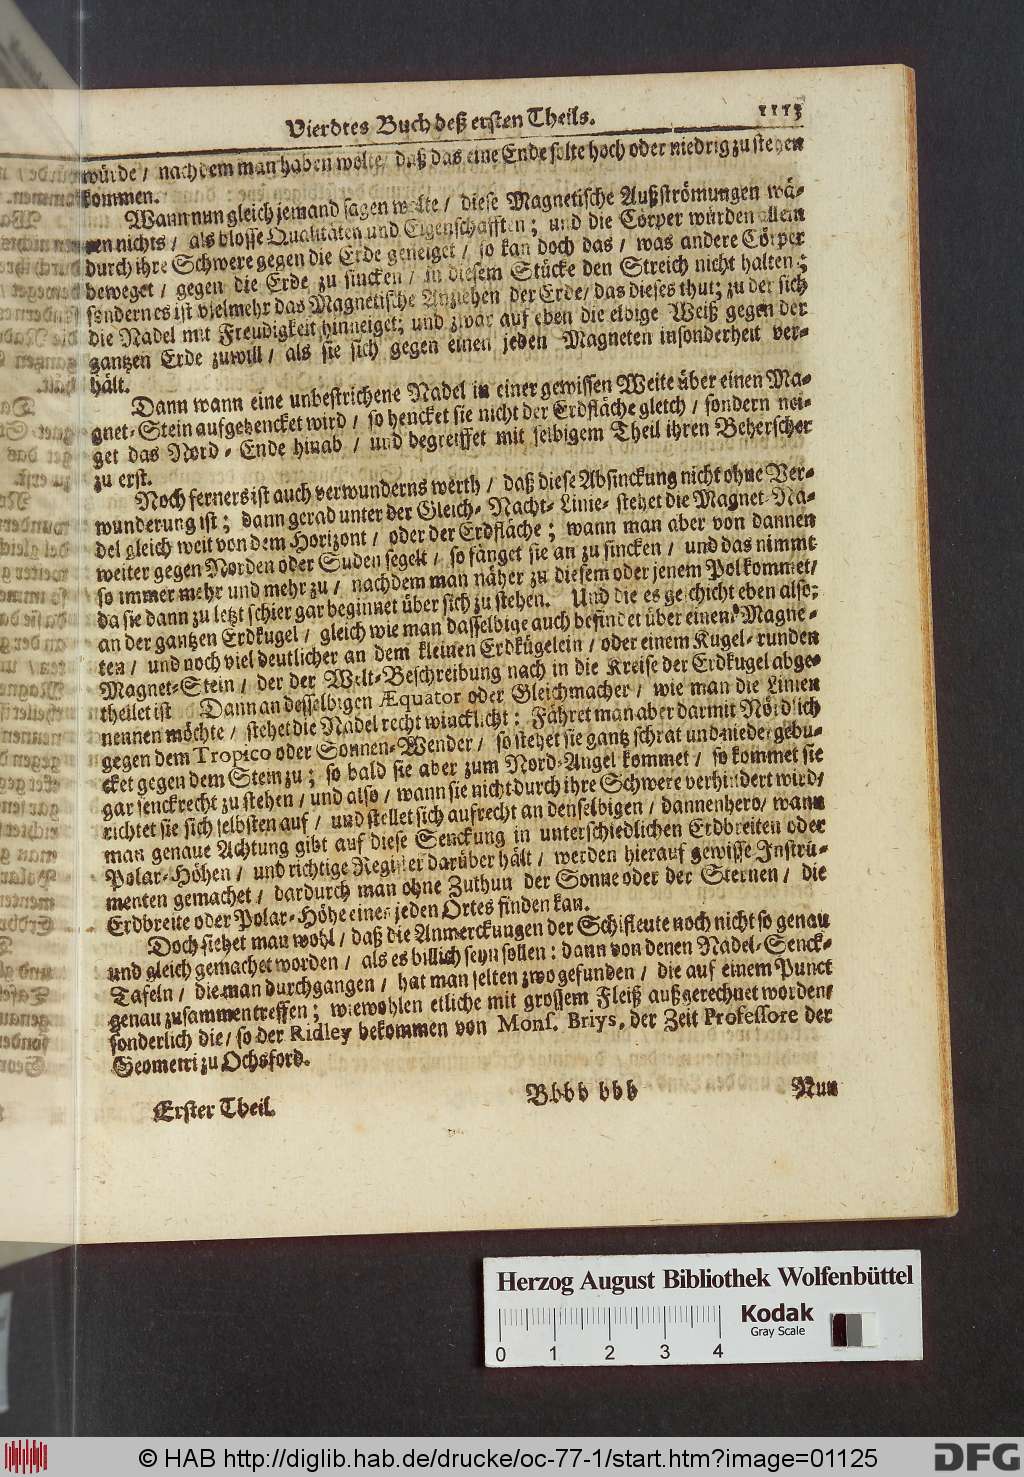 Vierdtes Buch deß ersten Theils. 1113
würde / nachdem man haben wolte / daß das eine Ende solte hoch oder niedrig zu stehen
kommen.
Wann nun gleich jemand sagen wolte / diese Magnetische Außströmungen wä-
ren nichts / als blosse Qualitäten und Eigenschafften; und die Cörper würden allein
durch ihre Schwere gegen die Erde geneiget / so kan doch das / was andere Cörper
beweget / gegen die Erde zu sincken / in diesem Stücke den Streich nicht halten;
sondern es ist vielmehr das Magnetische Anziehen der Erde / das dieses thut; zu der sich
die Nadel mit Freudigkeit hinneiget; und zwar auf eben die selbige Weiß gegen der
gantzen Erde zuwill / als sie sich gegen einen jeden Magneten insonderheit ver-
hält.
Dann wann eine unbestrichene Nadel in einer gewissen Weite über einen Ma-
gnet-Stein aufgehencket wird / so hencket sie nicht der Erdfläche gleich / sondern nei-
get das Nord-Ende hinab / und begreiffet mit selbigem Theil ihren Beherscher
zu erst.
Noch ferners ist auch verwunderns werth / daß diese Absinckung nicht ohne Ver-
wunderung ist; dann gerad unter der Gleich-Nacht-Linie- stehet die Magnet-Na-
del gleich weit von dem Horizont / oder der Erdfläche; wann man aber von dannen
weiter gegen Norden oder Suden segelt / so fänget sie an zu sincken / und das nimmt
so immer mehr und mehr zu / nachdem man näher zu diesem oder jenem Pol kommet /
da sie dann zu letzt schier gar beginnet über sich zu stehen. Und die es geschicht eben also;
an der gantzen Erdkugel / gleich wie man dasselbige auch befindet über einem Magne-
ten / und noch viel deutlicher an dem kleinen Erdkügelein / oder einem Kugel-runden
Magnet-Stein / der der Welt-Beschreibung nach in die Kreise der Erdkugel abge-
theilet ist Dann an desselbigen Æquator oder Gleichmacher / wie man die Linien
nennen möchte / stehet die Nadel recht wincklicht: Fähret man aber darmit Nördlich
gegen dem Tropico oder Sonnen-Wender / so stehet sie gantz schrat und niedergebu-
cket gegen dem Stein zu; so bald sie aber zum Nord-Angel kommet / so kommet sie
gar senckrecht zu stehen / und also / wann sie nicht durch ihre Schwere verhindert wird /
richtet sie sich selbsten auf / und stellet sich aufrecht an denselbigen / dannenhero / wann
man genaue Achtung gibt auf diese Senckung in unterschiedlichen Erdbreiten oder
Polar-Höhen / und richtige Register darüber hält / werden hierauf gewisse Instru-
menten gemachet / dardurch man ohne Zuthun der Sonne oder der Sternen / die
Erdbreite oder Polar-Höhe eines jeden Ortes finden kan.
Doch siehet man wohl / daß die Anmerckungen der Schifleute noch nicht so genau
und gleich gemachet worden / als es billich seyn sollen: dann von denen Nadel-Senck-
Tafeln / die man durchgangen / hat man selten zwo gefunden / die auf einem Punct
genau zusammentreffen; wiewohlen etliche mit grossem Fleiß außgerechnet worden /
sonderlich die / so der Ridley bekommen von Mons. Briys, der Zeit Professore der
Geometri zu Ochsford.
Erster Theil. Bbbb bbb Nun
Herzog August Bibliothek Wolfenbüttel
Kodak
Gray Scale
0 1 2 3 4
© HAB http://diglib.hab.de/drucke/oc-77-1/start.htm?image=01125
DFG